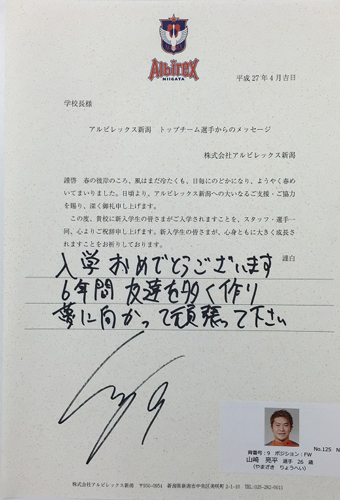 ALBIREX
NIIGATA
平成27年4月吉日
学校長様
アルビレックス新潟 トップチーム選手からのメッセージ
株式会社アルビレックス新潟
謹啓 春の彼岸のころ、風はまだ冷たくも、日毎にのどかになり、ようやく春め
いてまいりました。日頃より、アルビレックス新潟への大いなるご支援・ご協力
を賜り、深く御礼申し上げます。
この度、貴校に新入学生の皆さまがご入学されますことを、スタッフ・選手一
同、心よりご祝辞申し上げます。新入学生の皆さまが、心身ともに大きく成長さ
れますことをお祈りしております。
謹白
入学おめでとうございます
6年間 友達を多く作り
夢に向かって頑張って下さい
9
No.125 N
背番号：9 ポジション：FW
山崎 亮平 選手 26 歳
(やまざき りょうへい)
株式会社アルビレックス新潟 〒950-0954 新潟県新潟市中央区美咲町2-1-10 TEL.025-282-0011